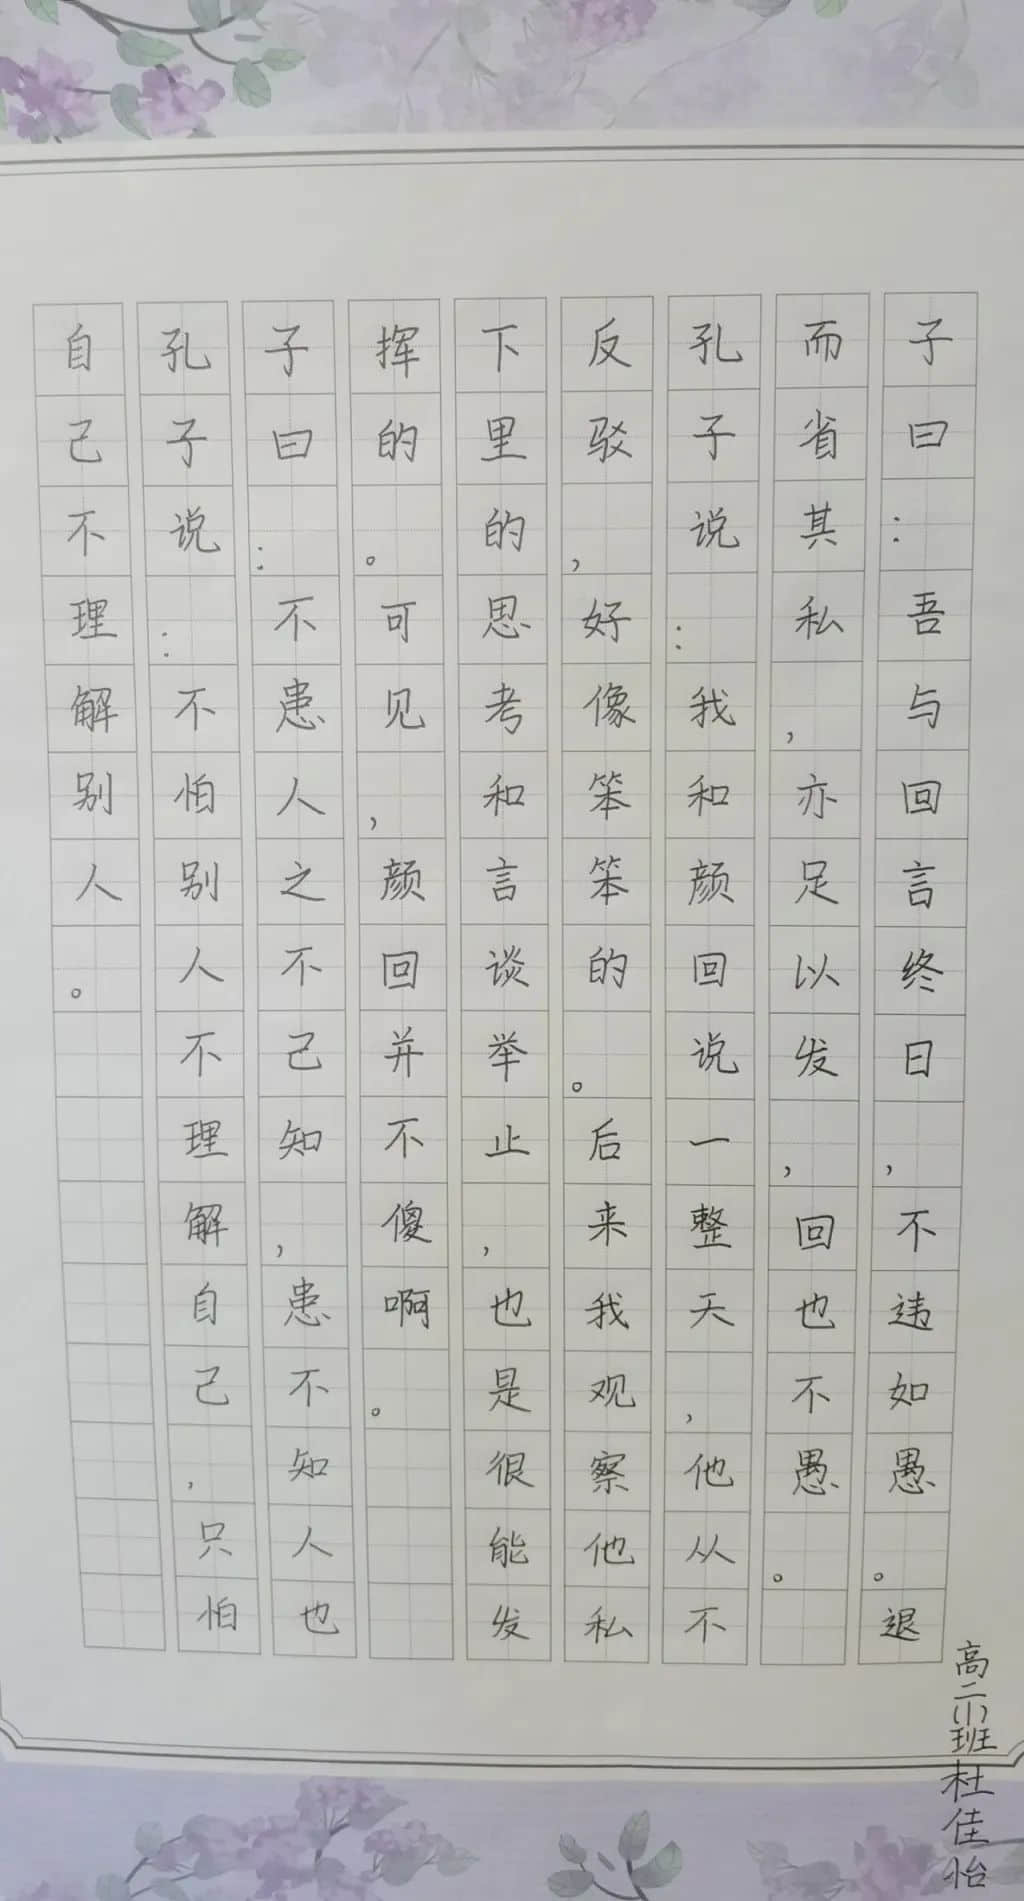 子曰：吾与回言终日，不违如愚。退
而省其私，亦足以发，回也不愚。
孔子说：我和颜回说一整天，他从不
反驳，好像笨笨的。后来我观察他私
下里的思考和言谈举止，也是很能发
挥的。可见，颜回并不傻啊。
子曰：不患人之不己知，患不知人也
孔子说：不怕别人不理解自己，只怕
自己不理解别人。
高二(1)班杜佳怡